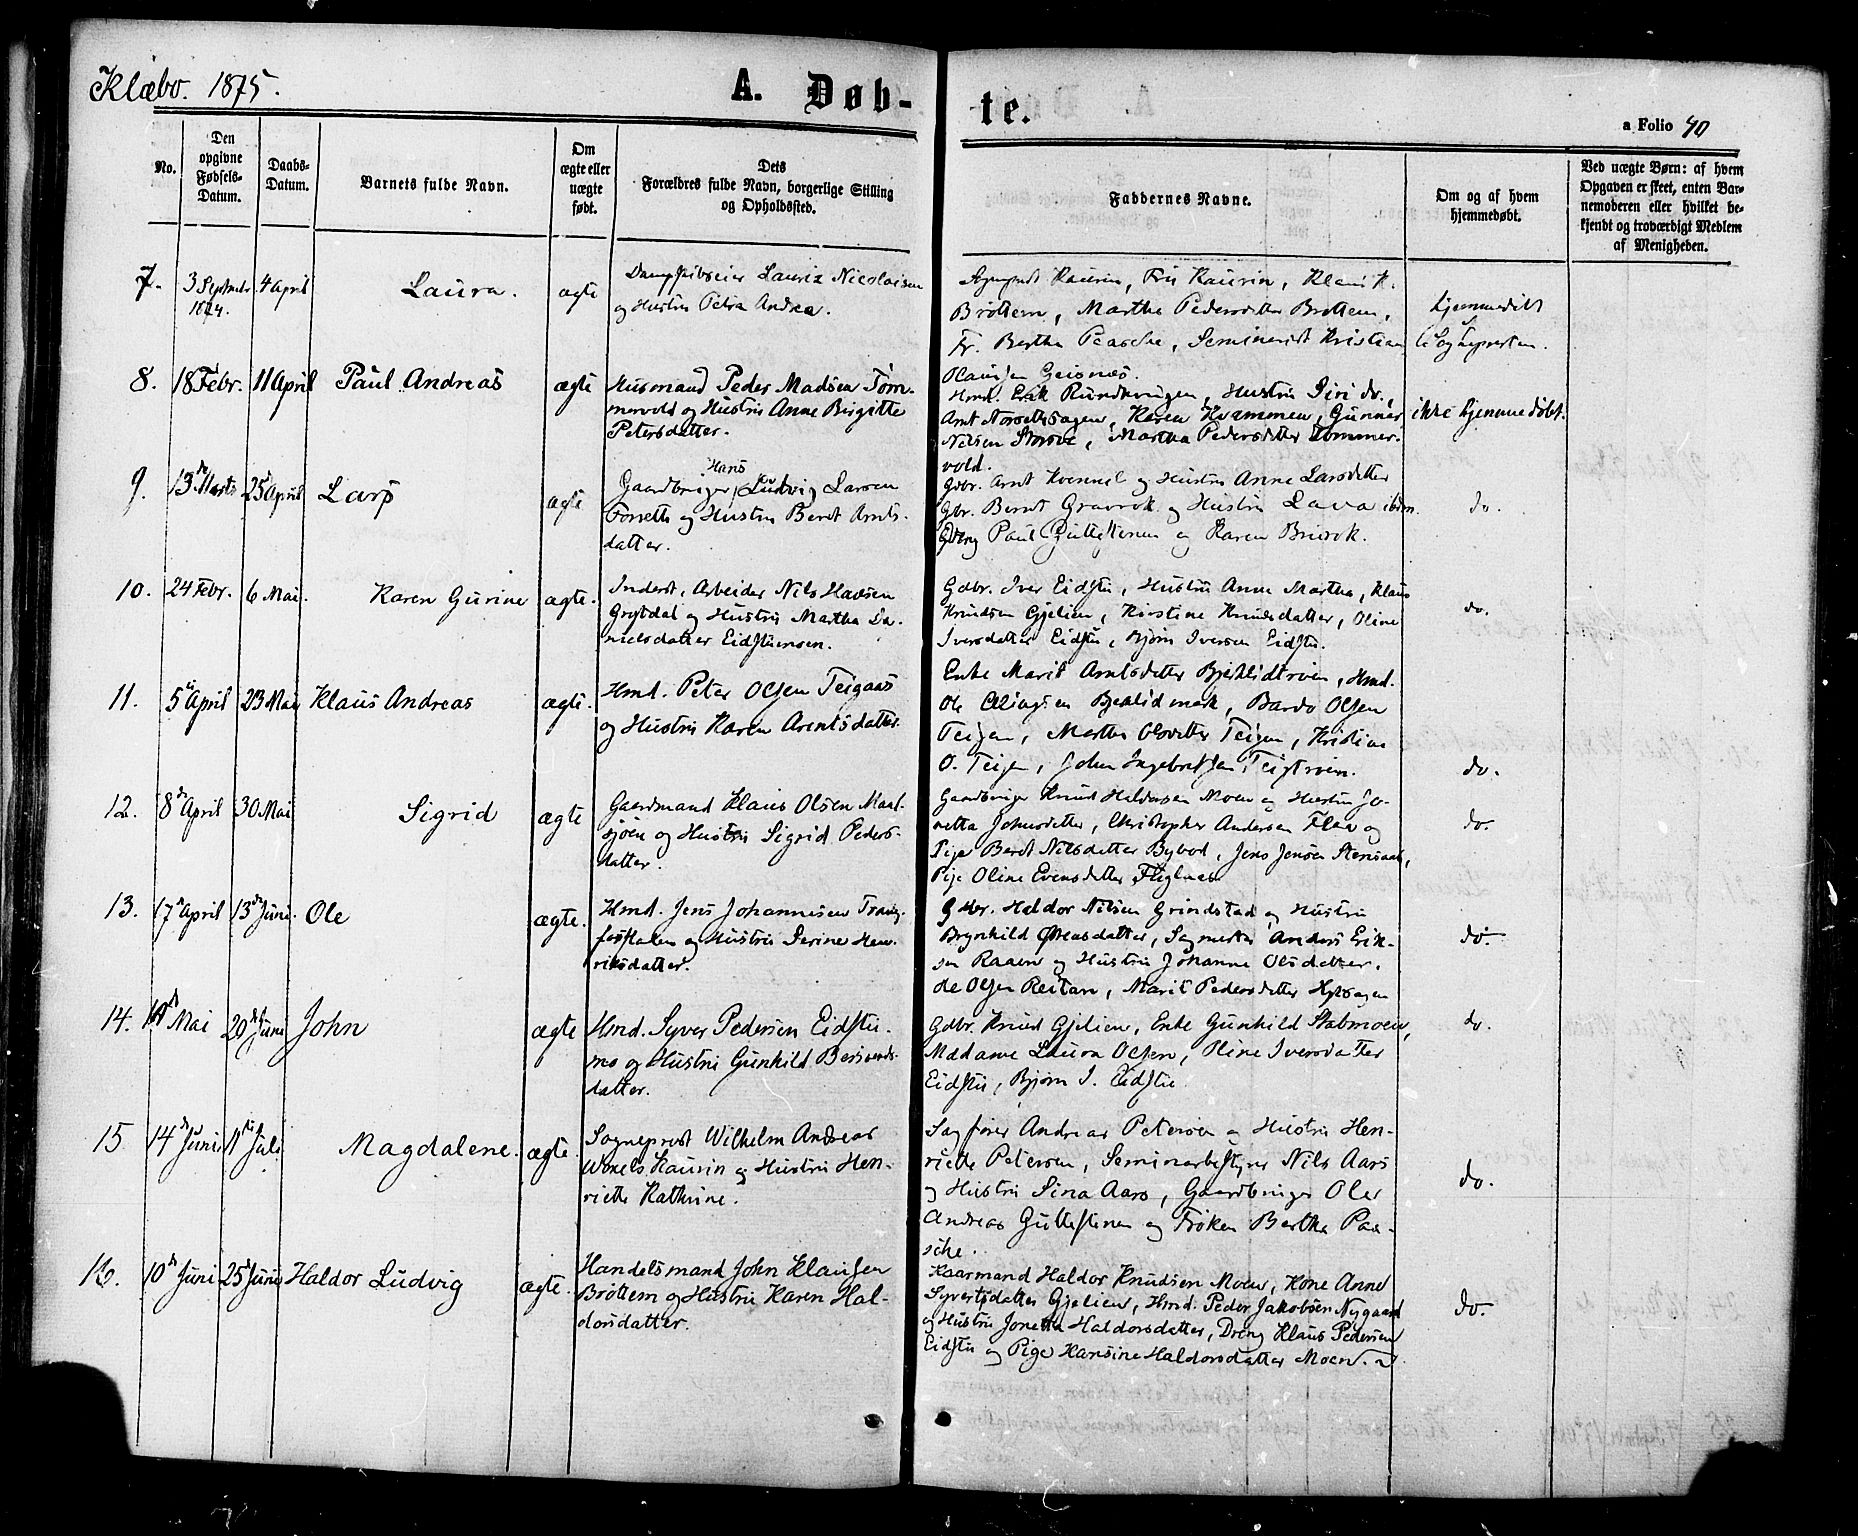 Klæbo. 1875.
A. Døb-
te.
a Folio 40
No.
Den opgivne Fødsels-Datum.
Daabs-Datum.
Barnets fulde Navn.
Om ægte eller uægte født.
Dets Forældres fulde Navn, borgerlige Stilling og Opholdssted.
Faddernes Navne.
Om og af hvem hjemmedøbt.
Ved uægte Børn: af hvem Opgaven er skeet, enten Barnemoderen eller hvilket bekjendt og troværdigt Medlem af Menigheden.
7. 3 Septembr 1874. 4 April Laura. ægte
Dampskibseier Lauritz Nicolaisen
og Hustru Petra Andrea.
Kaurin, Fru Kaurin, K.
Brøttem, Martha Pedersdatter Brøttem,
Fr. Bertha Paasche, Seminarist Kristian
Geisnæs.
hjemmedøbt
Sognepresten.
8. 18 Febr. 11 April Paul Andreas ægte
Husmand Peder Madsen Töm-
mervold og Hustru Anne Birgitte
Petersdatter.
Hmd. Erik Rundhaugen, Hustru Siri do,
Arnt, Karen Kvammen, Gunnar
Nilsen, Martha Pedersdatter Tømmer-
vold.
ikke hjemmedøbt.
9. 13de Marts 25 April Lars ægte
Hans
Gaardbruger Ludvig Larsen
og Hustru Beret Arnts-
datter.
Gdbr. Arnt og Hustru Anne Larsdatter
Gbr. Bernt Gravrok og Hustru Lava ibdm.
Paul Guttestenen og Karen
do.
10. 24 Febr. 6 Mai Karen Gurine ægte.
Inderst, Arbeider Nils
og Hustru Martha Da-
nielsdatter Eidstumoen.
Gdbr. Iver Eidstu, Hustru Anne Martha, Klaus
Knudsen Gjelien, Kirstine Knudsdatter, Oline
Iversdatter Eidstu, Bjørn Iversen Eidstu.
do.
11. 5te April 23 Mai Klaus Andreas ægte.
Hmd. Peter Olsen Teigaas
og Hustru Karen Arentsdatter.
Enke Marit Arntsdatter, Hmd.
Ole, Bardo Olsen
Teigen, Martha Teigen, Kristine
O. Teigen, John Ingebretsen,
do.
12. 8de April 30 Mai Sigrid ægte
Gaardmand Klaus Olsen Maal-
sjöen og Hustru Sigrid Peders-
datter.
Gaardbruger Knud Haldorsen Moen og Hustru Jo-
netta Johnsdatter, Christopher Andersen Flaa og
Pige Beret Nilsdatter, Jens Jensen,
Pige Oline Evensdatter
do.
13. 17de April 13de Juni. Ole ægte.
Hmd. Jens Johannesen
og Hustru Serine Hen-
riksdatter.
Gdbr. Haldor Nilsen Grindstad og Hustru
Brynhild, Anders Erik-
sen Raaen og Hustru Johanne Olsdatter.
Ole Olsen Reitan, Marit Pedersdatter
do.
14. Mai 20de Juni John ægte
Hmd. Syver Pedersen Eidstu-
mo og Hustru Gunhild
datter.
Gdbr. Knud Gjelien, Enke Gunhild Stabmoen,
Madame Laura Olsen, Oline Iversdatter
Eidstu, Bjørn I. Eidstu.
do.
15 14de Juni 11te Juli Magdalene. ægte.
Sogneprest Wilhelm Andreas
Wexels Kaurin og Hustru Hen-
riette Kathrine.
Sagfører Andreas Petersen og Hustru Hen-
riette Petersen, Seminarbestyrer Nils Aars
og Hustru Sina Aars, Gaardbruger Ole
Andreas Guttestenen og Frøken Bertha Paa-
sche.
do.
16. 10de Juni 25de Juni Haldor Ludvig ægte.
Handelsmand John Klausen
Brøttem og Hustru Karen Hal-
dorsdatter.
Kaarmand Haldor Knudsen Moen, Kone Anne
Syvertsdatter Gjelien, Hmd. Peder Jakobsen Nygaard
og Hustru Jonetta Haldorsdatter, Dreng Klaus Pedersen
Eidstu og Pige Hansine Haldorsdatter Moen.
do.